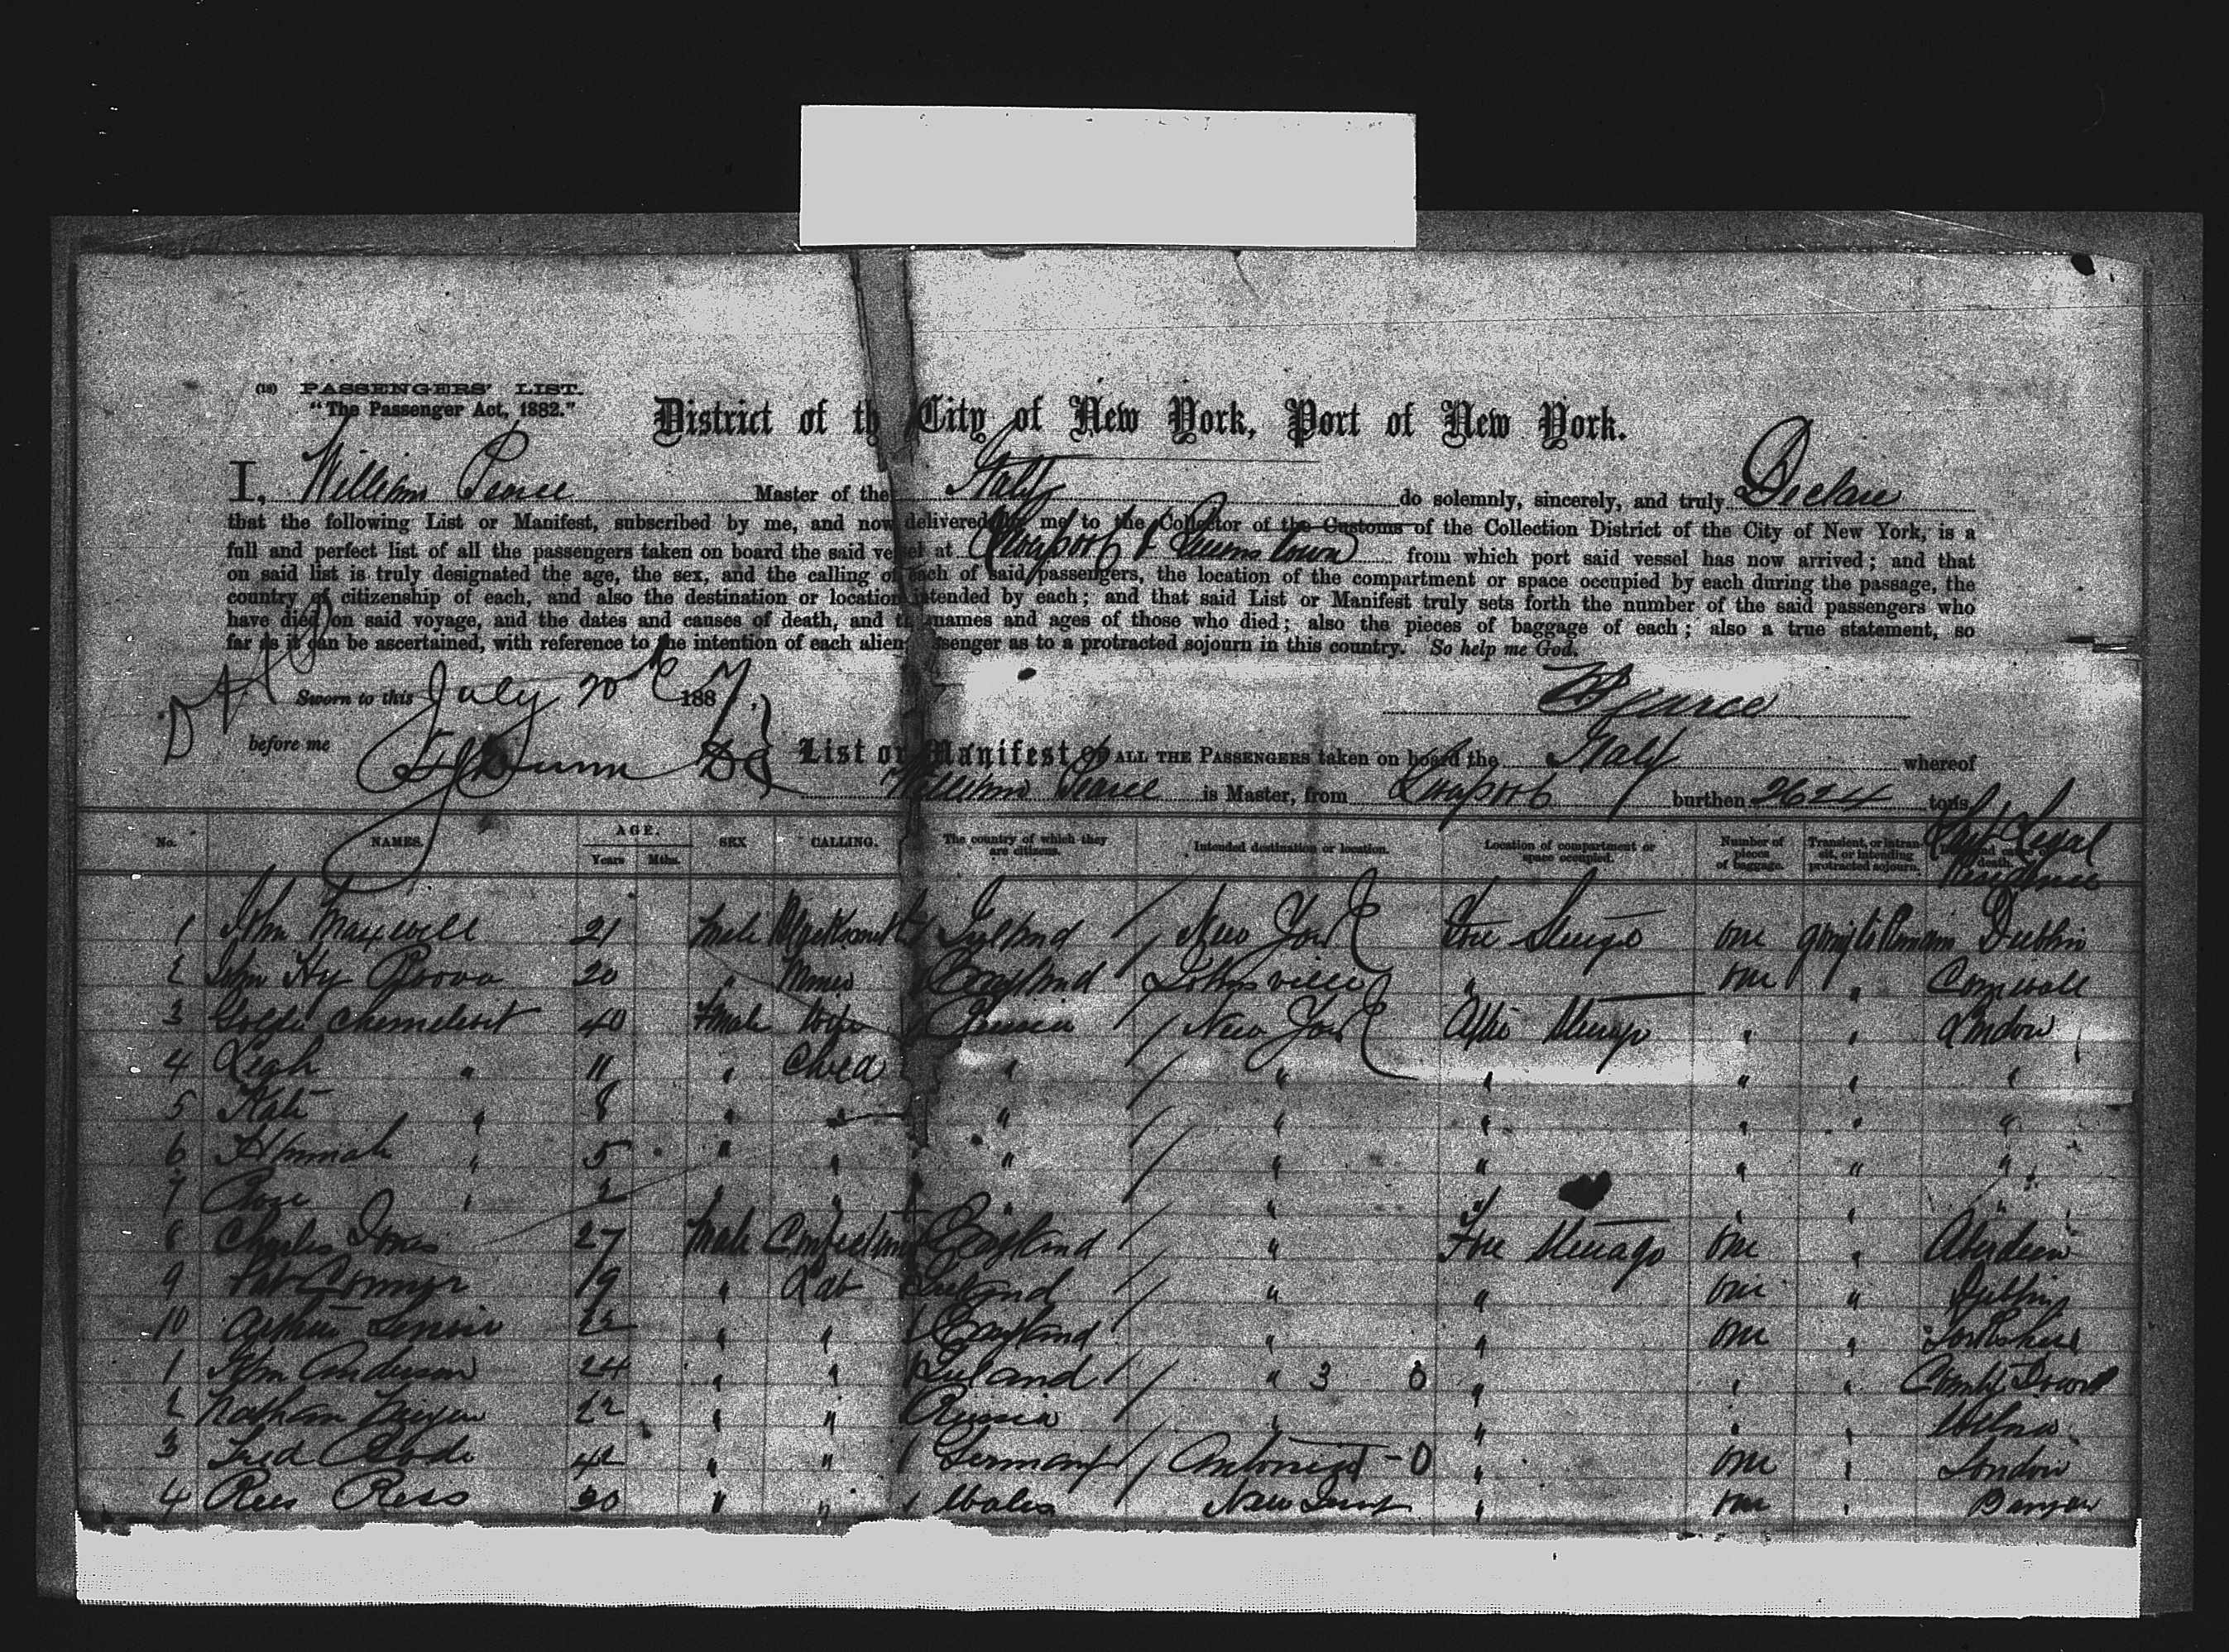 (18) PASSENGERS' LIST.
"The Passenger Act, 1882."
District of th City of New York, Port of New York.
I, William Pearce Master of the Italy do solemnly, sincerely, and truly Declare
that the following List or Manifest, subscribed by me, and now delivered by me to the Collector of the Customs of the Collection District of the City of New York, is a
full and perfect list of all the passengers taken on board the said vessel at Liverpool & Queenstown from which port said vessel has now arrived; and that
on said list is truly designated the age, the sex, and the calling of each of said passengers, the location of the compartment or space occupied by each during the passage, the
country of citizenship of each, and also the destination or location intended by each; and that said List or Manifest truly sets forth the number of the said passengers who
have died on said voyage, and the dates and causes of death, and the names and ages of those who died; also the pieces of baggage of each; also a true statement, so
far as it can be ascertained, with reference to the intention of each alien passenger as to a protracted sojourn in this country. So help me God.
Sworn to this July 20th 1887. W Pearce
before me
List or Manifest of ALL THE PASSENGERS taken on board the Italy whereof
William Pearce is Master, from Liverpool burthen 2624 tons
No. NAMES. AGE. Years Mths. SEX CALLING. The country of which they are citizens. Intended destination or location. Location of compartment or space occupied. Number of pieces of baggage. Transient, or intransit, or intending protracted sojourn. Last Legal Residence
1 John Maxwell 21 Male Blacksmith Ireland New York Fore Steerage one going to Remain Dublin
2 John Hy 20 " Miner England " one " Cornwall
3 40 Female Wife Russia New York Aft Steerage " " London
4 Leah " 11 " Child " " " " " "
5 Kate " 8 " " " " " " " "
6 Hannah " 5 " " " " " " " "
7 Rose " 2 " " " " " " " "
8 Charles Jones 27 Male England " Fore Steerage one " Aberdeen
9 Pat Connor 19 " Lab Ireland " " one " Dublin
10 Arthur 22 " " England " " one " Yorkshire
1 John Anderson 24 " " Ireland " 3 0 " " " County Down
2 Nathan 22 " " Russia " " " " Wilna
3 Fred Bode 42 " " Germany - 0 " one " London
4 Rees Rees 20 " " Wales " one "